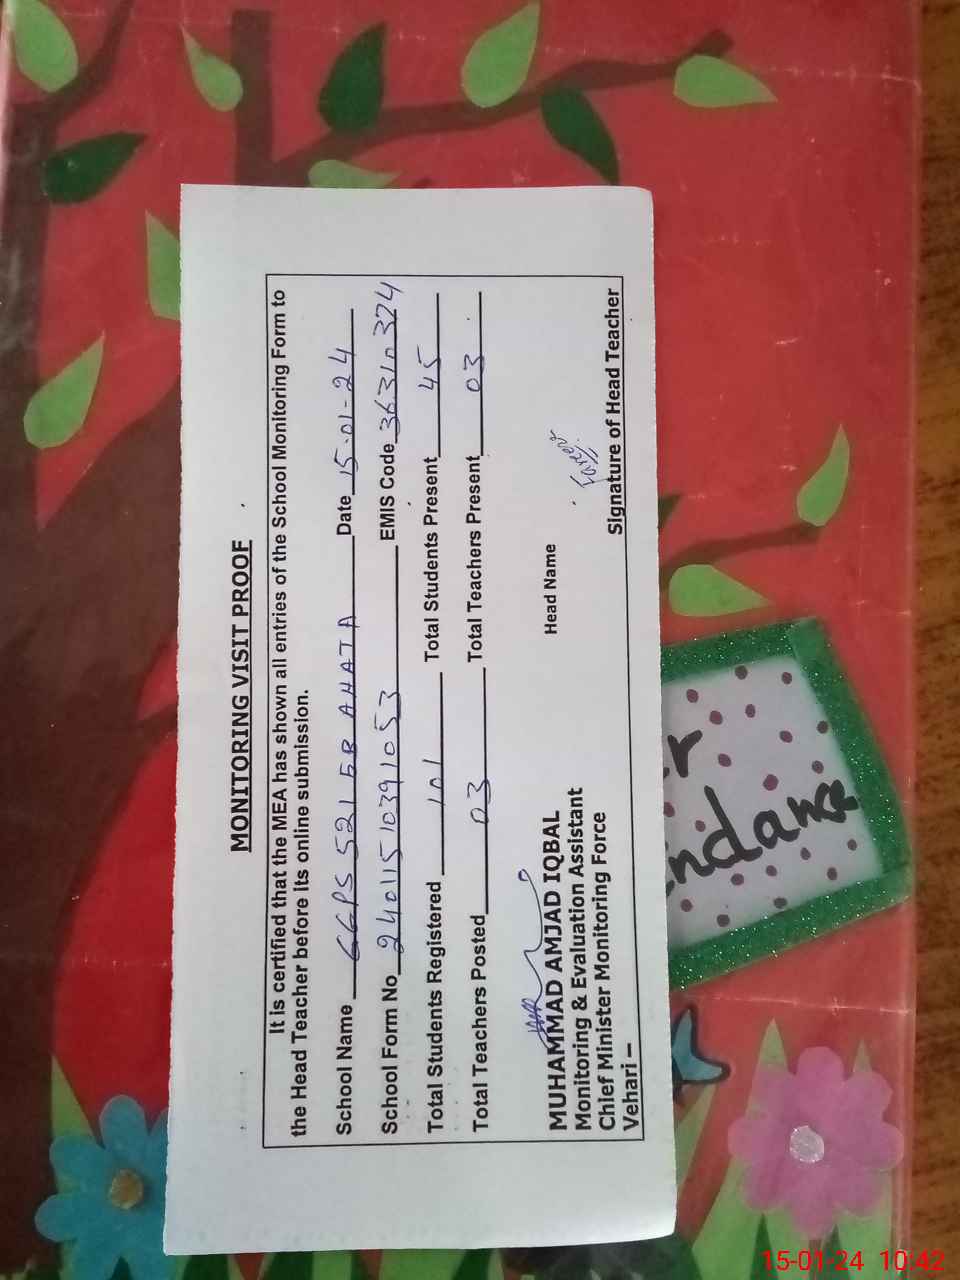 MONITORING VISIT PROOF
It is certified that the MEA has shown all entries of the School Monitoring Form to
the Head Teacher before its online submission.
School Name GGPS 521 EB AHATA Date 15-01-24
School Form No 240115103910 53 EMIS Code 36310324
Total Students Registered 101 Total Students Present 45
Total Teachers Posted 03 Total Teachers Present 03
MUHAMMAD AMJAD IQBAL
Monitoring & Evaluation Assistant
Chief Minister Monitoring Force
Vehari –
Head Name
Signature of Head Teacher
r
ndance
15-01-24 10:42